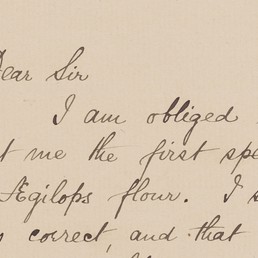 Dear Sir
I am obliged
t me the first spe
Ægilops flour. I s
s correct, and that